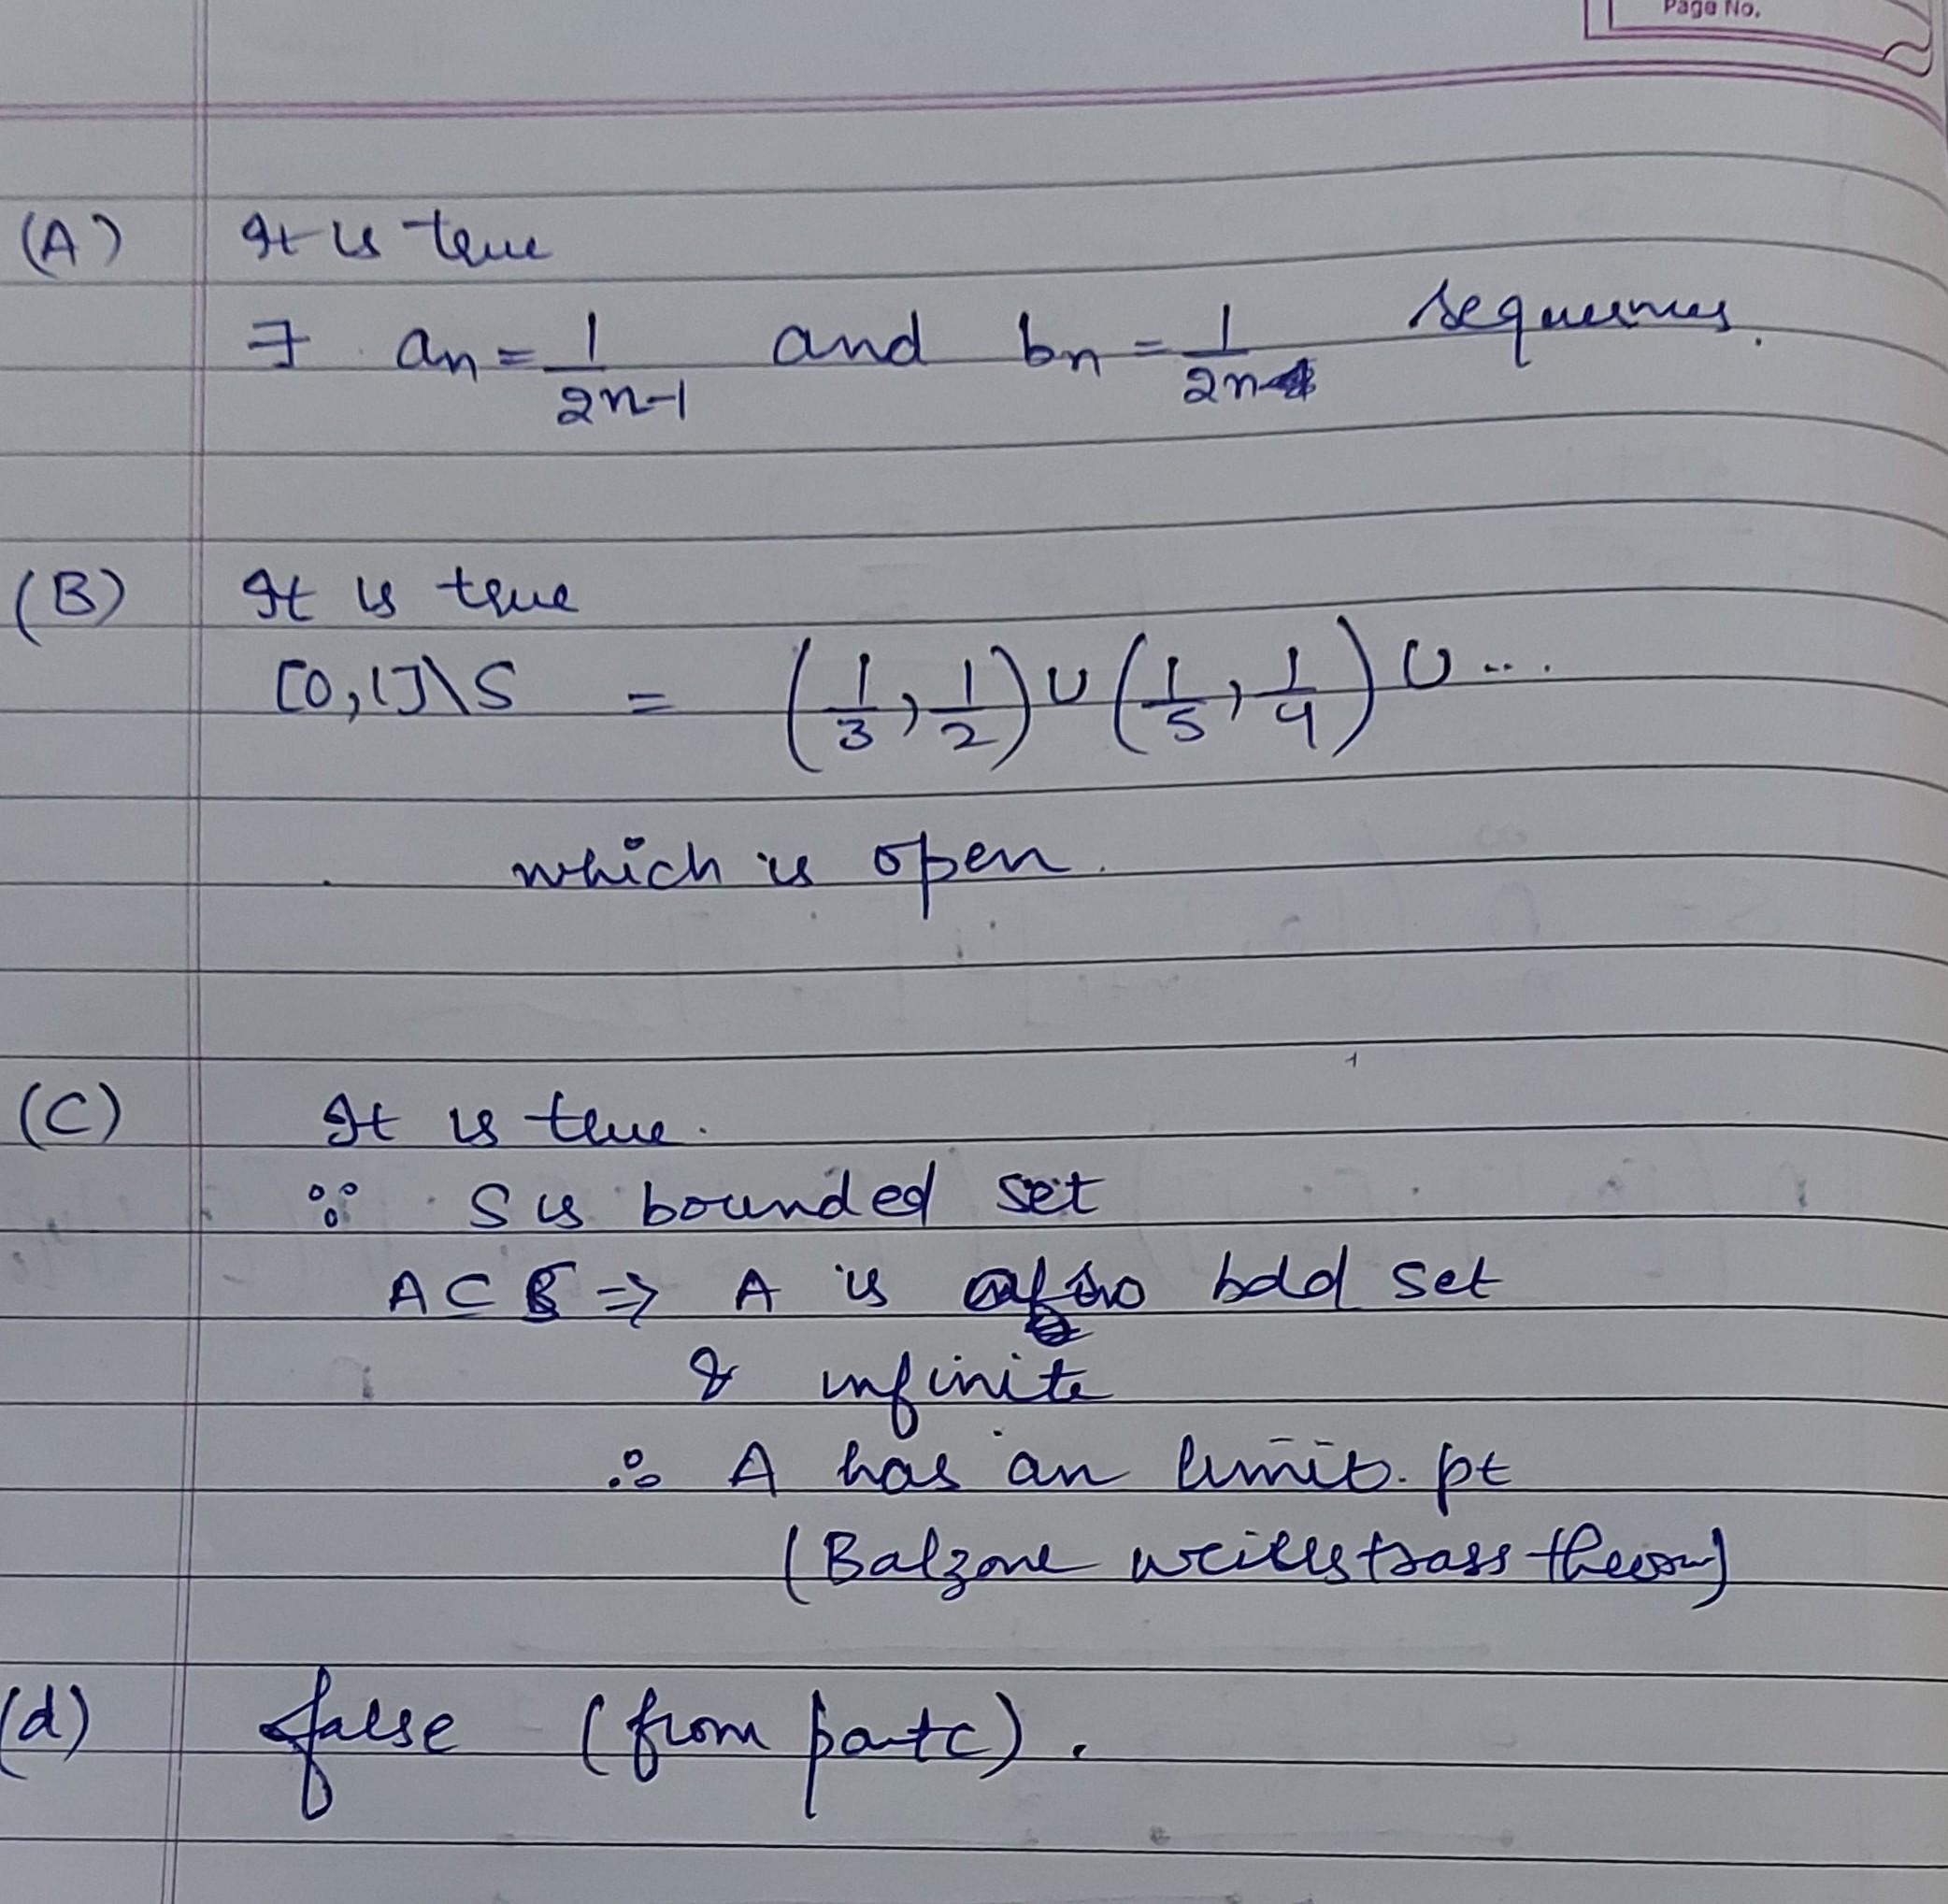 Page No.
(A) It is true
∃ an = 1/2n-1 and bn = 1/2n sequences.
(B) It is true
[0,1]\S = (1/3, 1/2) ∪ (1/5, 1/4) ∪ ...
which is open.
(C) It is true.
∵ S is bounded set
A ⊂ S ⇒ A is also bdd set
& infinite
∴ A has an limit. pt
(Balzone weillstrass theorem)
(d) false (from part c).